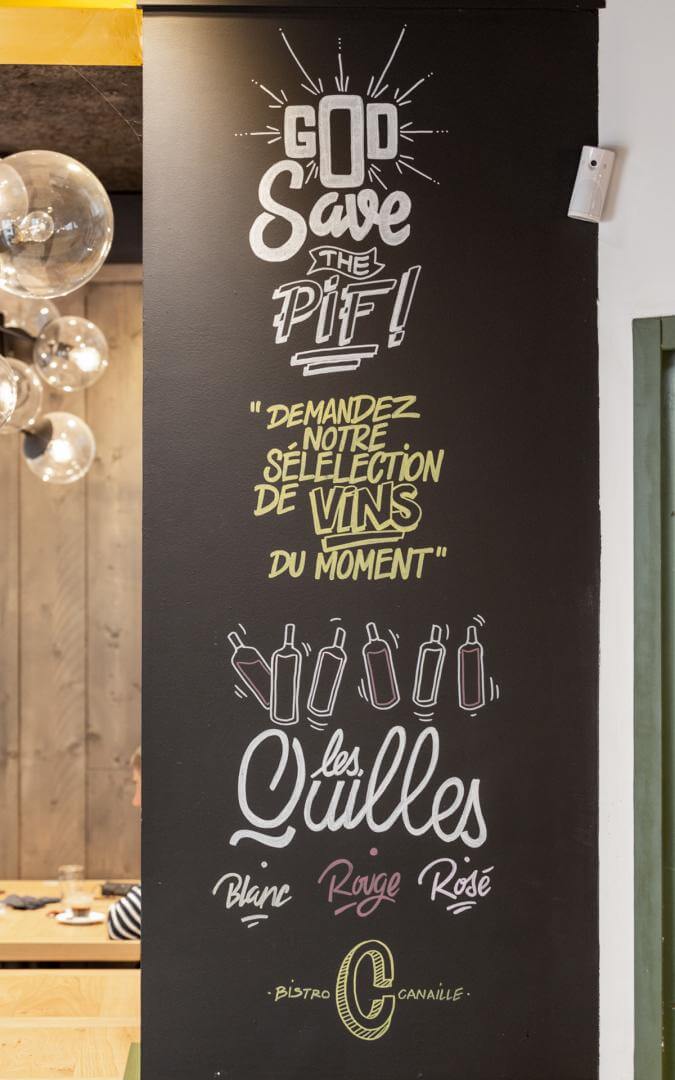 GOD
Save
THE
PiF!
"DEMANDEZ
NOTRE
SÉLELECTiON
DE ViNS
DU MOMENT"
les
Quilles
Blanc Rouge Rosé
·BiSTRO C CANAILLE·